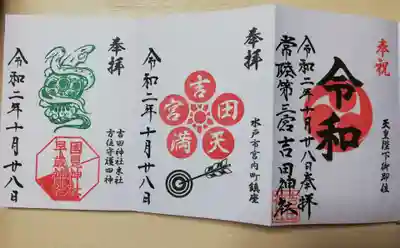 奉祝
天皇陛下御即位
令和
令和二年十月廿八日奉拝
常陸第三宮吉田神社
奉拝
水戸市宮内町鎮座
吉田天満宮
令和二年十月廿八日
奉拝
吉田神社末社
方位守護四神
令和二年十月廿八日